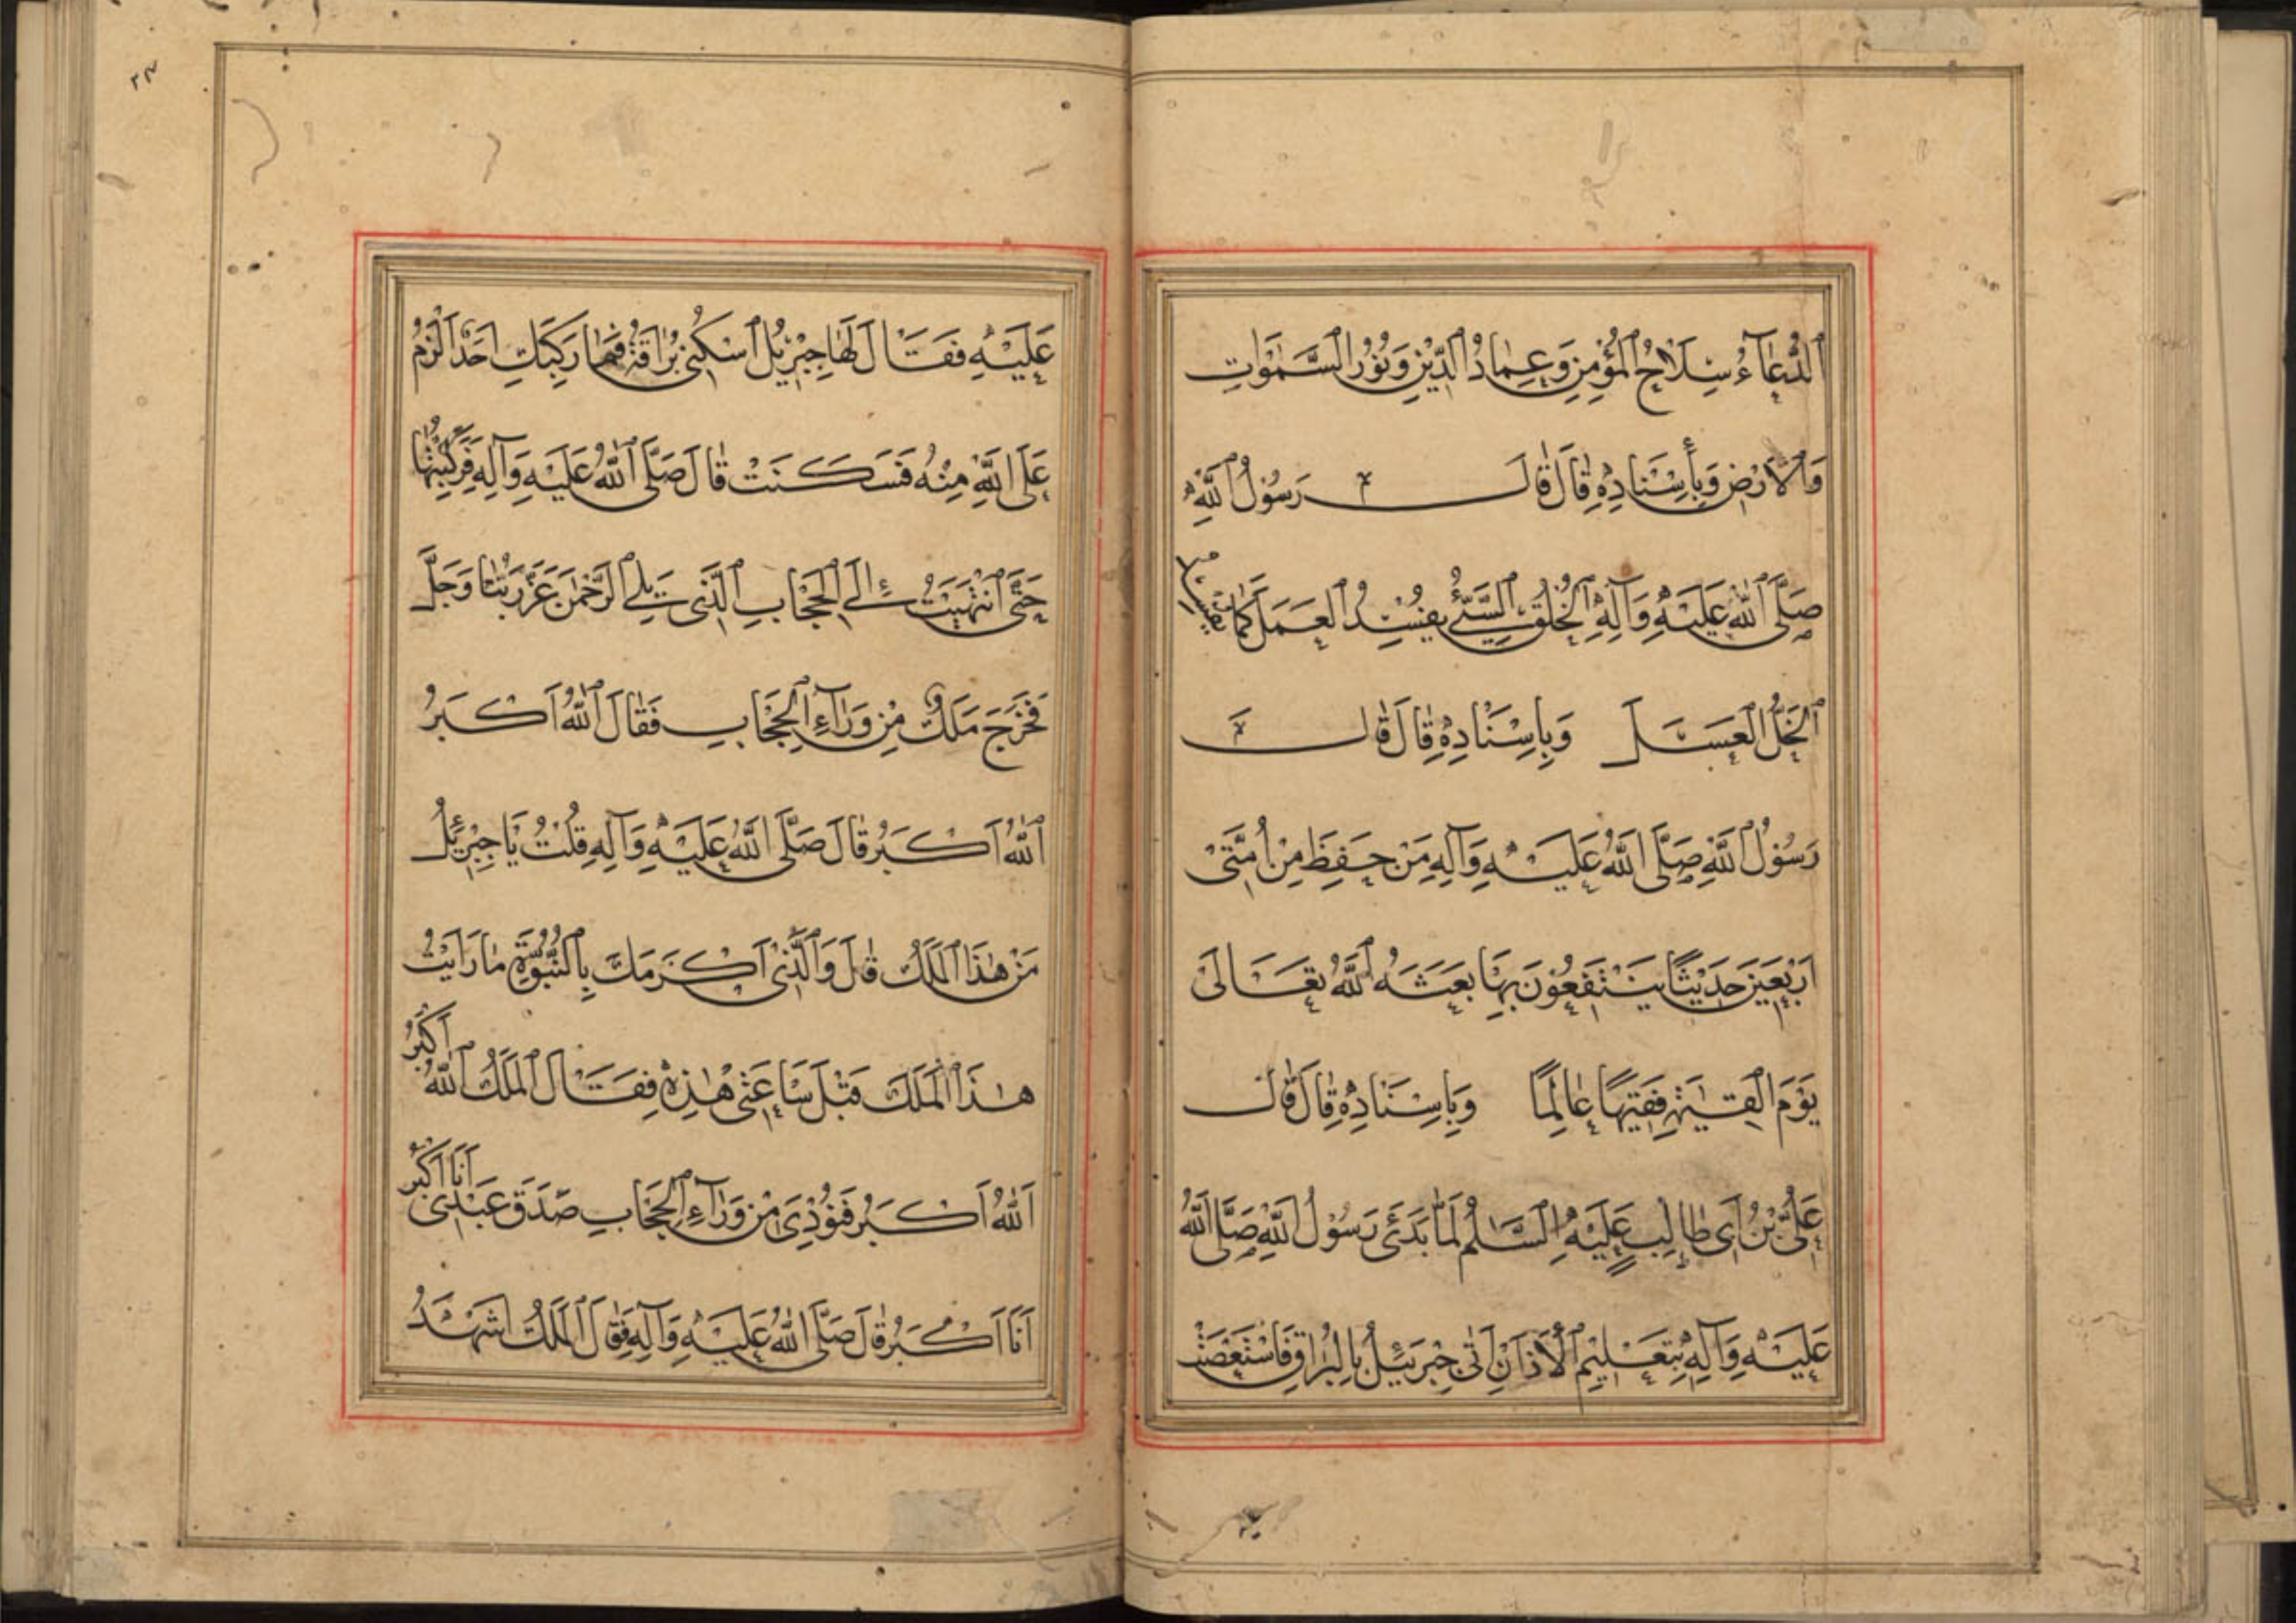 اَلدُّعَآءُ سِلَاحُ الْمُؤْمِنِ وَعِمَادُ الدِّيْنِ وَنُوْرُ السَّمٰوَاتِ
وَالْاَرْضِ وَبِأِسْنَادِهٖ قَالَ قَالَ رَسُوْلُ اللّٰهِ
صَلَّى اللّٰهُ عَلَيْهِ وَآلِهٖ الْخُلُقُ السَّيِّئُ يُفْسِدُ الْعَمَلَ كَمَا يُفْسِدُ
الْخَلُّ الْعَسَلَ وَبِاِسْنَادِهٖ قَالَ قَالَ
رَسُوْلُ اللّٰهِ صَلَّى اللّٰهُ عَلَيْهِ وَآلِهٖ مَنْ حَفِظَ مِنْ اُمَّتِيْ
اَرْبَعِيْنَ حَدِيْثًا يَنْتَفِعُوْنَ بِهَا بَعَثَهُ اللّٰهُ تَعَالٰى
يَوْمَ الْقِيٰمَةِ فَقِيْهًا عَالِمًا وَبِاِسْنَادِهٖ قَالَ قَالَ
عَلِيُّ بْنُ اَبِى طَالِبٍ عَلَيْهِ السَّلٰمُ لَمَّا بَدَئَ رَسُوْلُ اللّٰهِ صَلَّى اللّٰهُ
عَلَيْهِ وَآلِهٖ بِتَعْلِيْمِ الْأَذَانِ اَتٰى جِبْرَئِيْلُ بِالْبُرَاقِ فَاسْتَصْعَبَتْ
عَلَيْهِ فَقَالَ لَهَا جِبْرِيْلُ اسْكُنِىْ بُرَاقَةُ فَمَا رَكِبَكِ اَحَدٌ اَكْرَمُ
عَلَى اللّٰهِ مِنْهُ فَسَكَنَتْ قَالَ صَلَّى اللّٰهُ عَلَيْهِ وَآلِهٖ فَرَكِبْتُهَا
حَتَّى انْتَهَيْتُ اِلَى الْحِجَابِ الَّذِىْ يَلِى الرَّحْمٰنَ عَزَّ رَبُّنَا وَجَلَّ
فَخَرَجَ مَلَكٌ مِنْ وَرَآءِ الْحِجَابِ فَقَالَ اللّٰهُ اَكْبَرُ
اَللّٰهُ اَكْبَرُ قَالَ صَلَّى اللّٰهُ عَلَيْهِ وَآلِهٖ قُلْتُ يَا جِبْرَئِيْلُ
مَنْ هٰذَا الْمَلَكُ قَالَ وَالَّذِىْ اَكْرَمَكَ بِالنُّبُوَّةِ مَا رَاَيْتُ
هٰذَا الْمَلَكَ قَبْلَ سَاعَتِىْ هٰذِهٖ فَقَالَ الْمَلَكُ اللّٰهُ اَكْبَرُ
اَللّٰهُ اَكْبَرُ فَنُوْدِىَ مِنْ وَرَآءِ الْحِجَابِ صَدَقَ عَبْدِىْ اَنَا اَكْبَرُ
اَنَا اَكْبَرُ قَالَ صَلَّى اللّٰهُ عَلَيْهِ وَآلِهٖ فَقَالَ الْمَلَكُ اَشْهَدُ